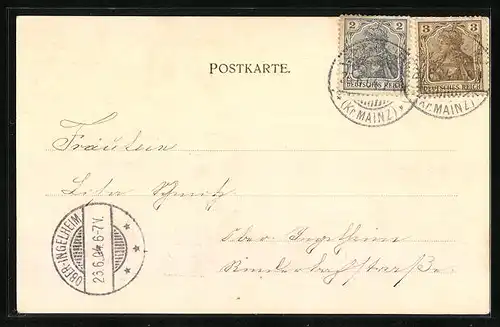 POSTKARTE.
2
DEUTSCHES REICH
3
DEUTSCHES REICH
(Kr. MAINZ)
(Kr. MAINZ)
Fräulein
Schmitz
Ober Ingelheim
OBER-INGELHEIM
23.6.04 6-7V.